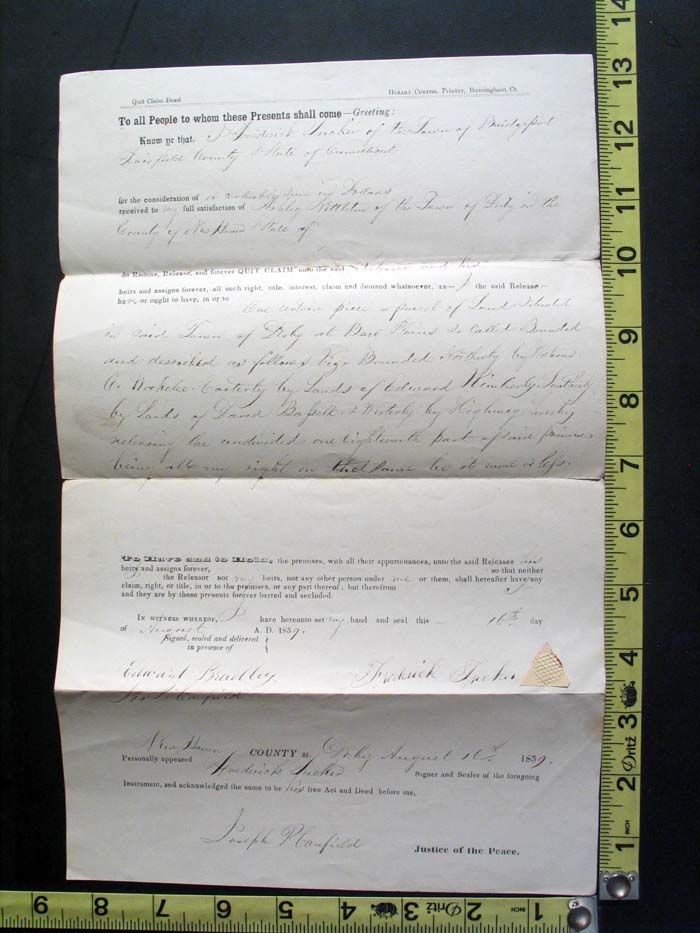 Quit Claim Deed. Hobart Curtiss, Printer, Birmingham, Ct.
To all People to whom these Presents shall come—Greeting:
Know ye that, I Frederick Tucker of the Town of Bridgeport
Fairfield County & State of Connecticut
for the consideration of a valuable sum in Dollars
received to my full satisfaction of Nettleton of the Town of Derby in the
County of New Haven & State of
do Remise, Release, and forever QUIT CLAIM unto the said and his
heirs and assigns forever, all such right, title, interest, claim and demand whatsoever, as—I the said Releasor
have or ought to have, in or to
One certain piece or parcel of Land Situated
in said Town of Derby at Bare Plains so called Bounded
and described as follows Bounded Northerly by
Easterly by Lands of Edward Wimberly Southerly
by Lands of David Bassett & Westerly by Highway
releasing the undivided one Eighteenth part of said premises
being all my right in the same be it more or less.
To Have and to Hold, the premises, with all their appurtenances, unto the said Releasee his
heirs and assigns forever, so that neither
I the Releasor nor my heirs, nor any other person under me or them, shall hereafter have any
claim, right, or title, in or to the premises, or any part thereof, but therefrom I
and they are by these presents forever barred and secluded.
In witness whereof, I have hereunto set my hand and seal this 16th day
of August A. D. 1859.
Signed, sealed and delivered
in presence of
Edward Bradley Frederick Tucker
Jos. P. Canfield
New Haven COUNTY ss. Derby August 16th 1859.
Personally appeared Frederick Tucker Signer and Sealer of the foregoing
Instrument, and acknowledged the same to be his free Act and Deed before me,
Joseph P Canfield Justice of the Peace.
14
13
12
11
10
9
8
7
6
5
4
3
Dritz
2
INCH
1
9 8 7 6 5 4 3 Dritz 2 INCH 1